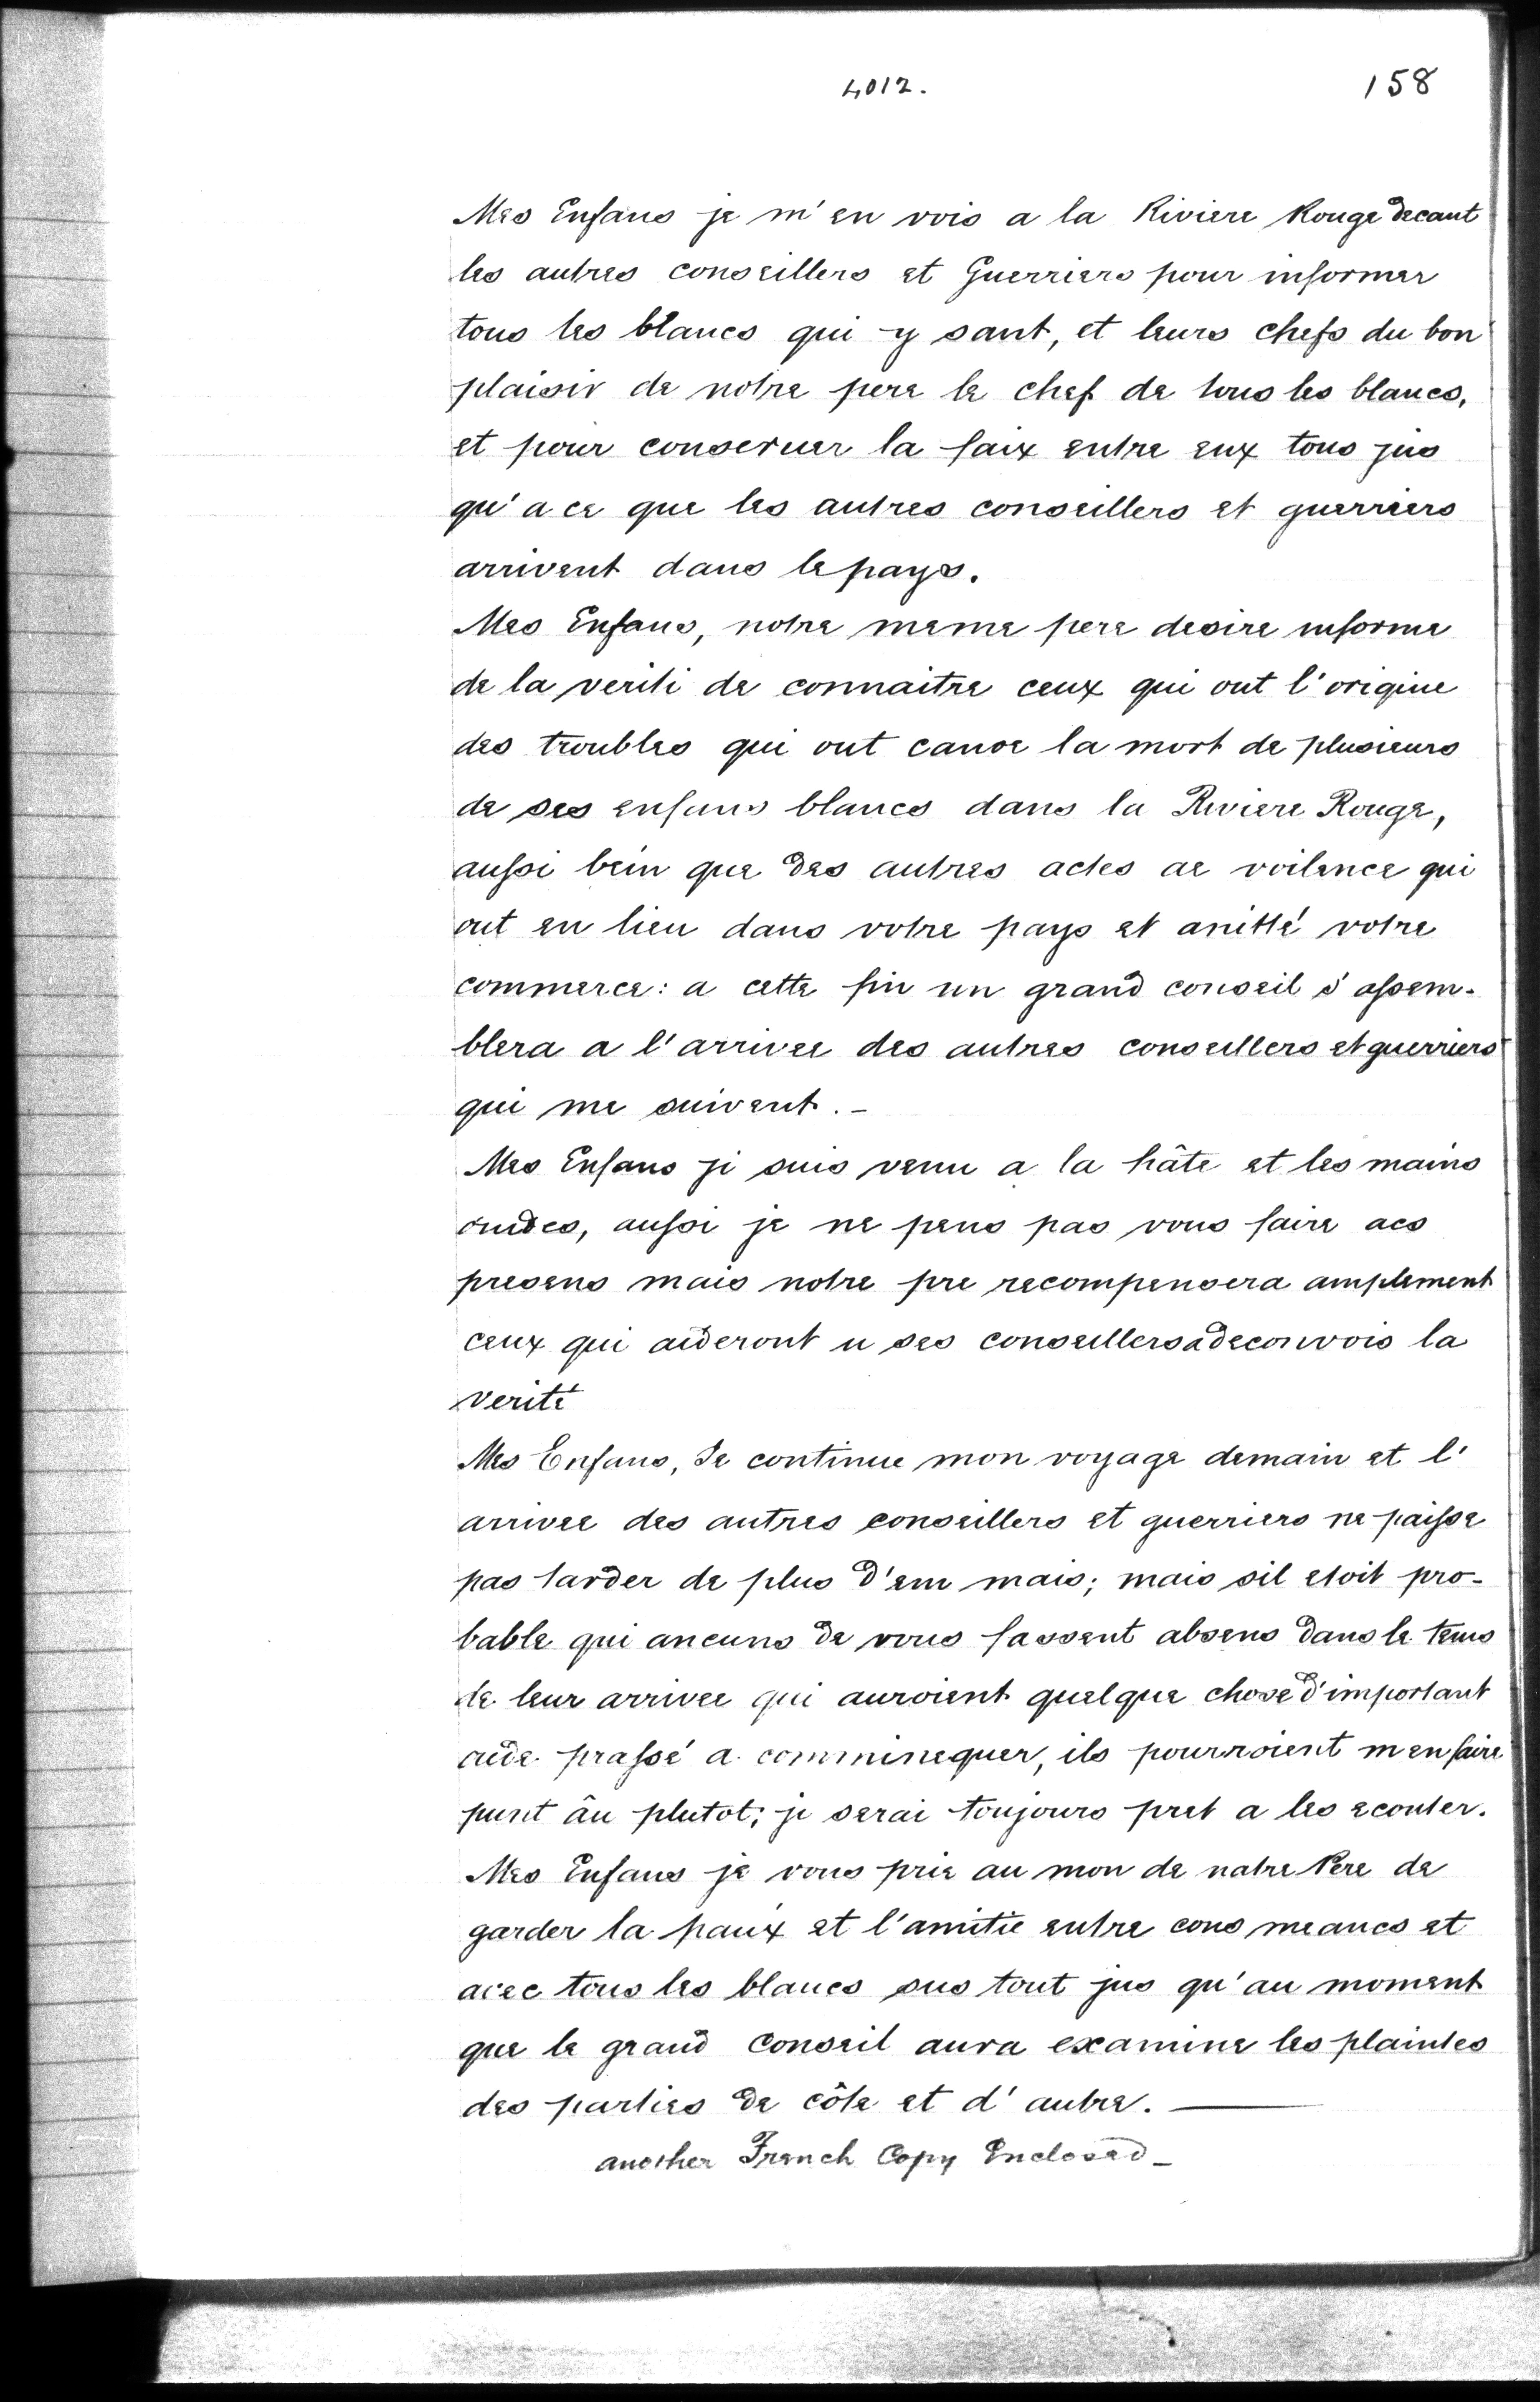 4012.
158
Mes Enfans je m'en vois a la Riviere Rouge decant
les autres conseillers et Guerriers pour informer
tous les blancs qui y sant, et leurs chefs du bon
plaisir de notre pere le chef de tous les blancs,
et pour conserver la faix entre eux tous jus
qu'a ce que les autres conseillers et guerriers
arrivent dans le pays.
Mes Enfans, notre meme pere desire informe
de la veriti de connaitre ceux qui ont l'origine
des troubles qui ont canse la mort de plusieurs
de ses enfans blancs dans la Riviere Rouge,
aussi bein que des autres actes de voilence qui
ont en lieu dans votre pays et anitté votre
commerce: a cette fin un grand conseil s'assem-
blera a l'arrivee des autres conseillers et guerriers
qui me suivent. -
Mes Enfans ji suis venu a la hâte et les mains
ruides, aussi je ne pens pas vous faire acs
presens mais notre pre recompensera amplement
ceux qui aideront u ses conseillers a deconvois la
verité
Mes Enfans, Je continue mon voyage demain et l'
arrivee des autres conseillers et guerriers ne paisse
pas tarder de plus d'em mais; mais sil etoit pro-
bable qui ancuns de vous fassent absens dans le tems
de leur arrivee qui auroient quelque chose d'important
aide prassé a comminequer, ils pourroient m en faire
punt âu plutot; je serai toujours pret a les econter.
Mes Enfans je vous prie au mon de natre Pere de
garder la paux et l'amitie entre cons meancs et
avec tous les blancs sus tout jus qu'au moment
que le grand Conseil aura examine les plaintes
des parties de côte et d'autre.
another French Copy Enclosed -